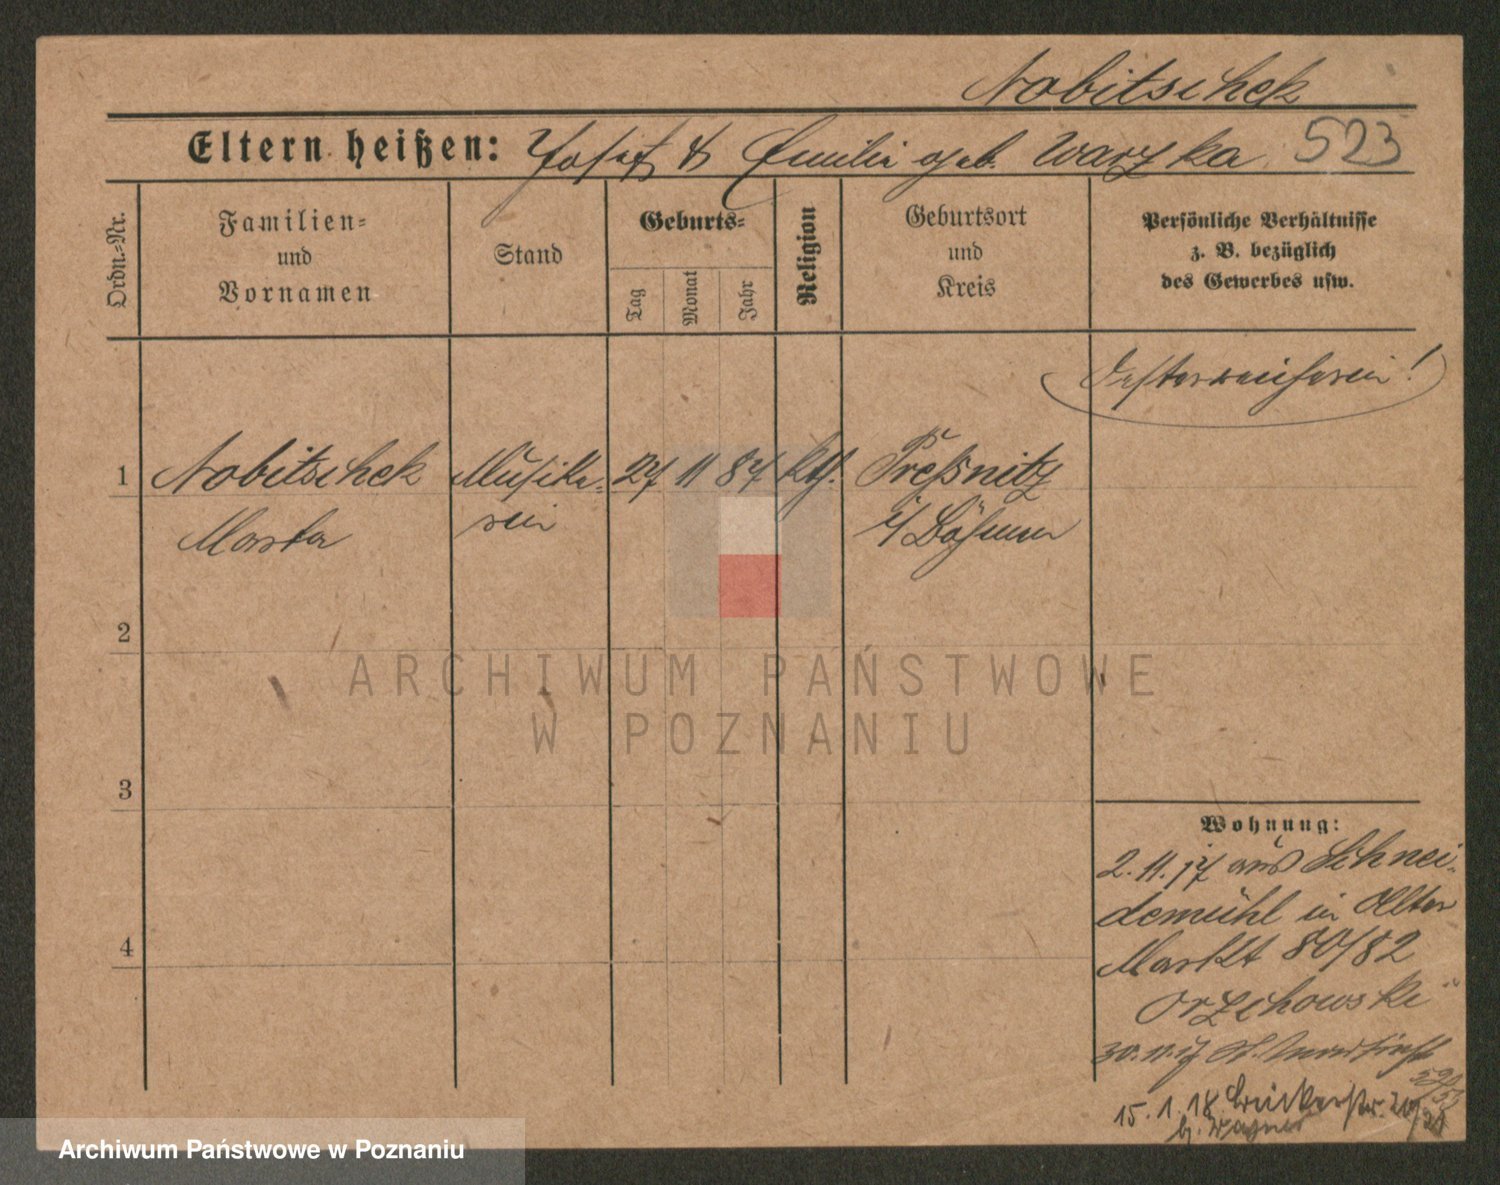 Nobitschek
Eltern heißen: Josef & Emilie geb. Warzka 523
Ordn.-Nr.
Familien-
und
Vornamen
Stand
Geburts-
Tag
Monat
Jahr
Religion
Geburtsort
und
Kreis
Persönliche Verhältnisse
z. B. bezüglich
des Gewerbes usw.
Oesterreicherin!
1 Nobitschek Musike- 27 11 87 kth. Preßnitz
Marta rin i/Böhmen
2
3
4
Wohnung:
2.11.17 aus Schnei-
demühl in Alter
Markt 80/82
Orzechowski
30.11.17 St.
15.1.18 Bäckerstr.
b. Wagner
ARCHIWUM PAŃSTWOWE
W POZNANIU
Archiwum Państwowe w Poznaniu